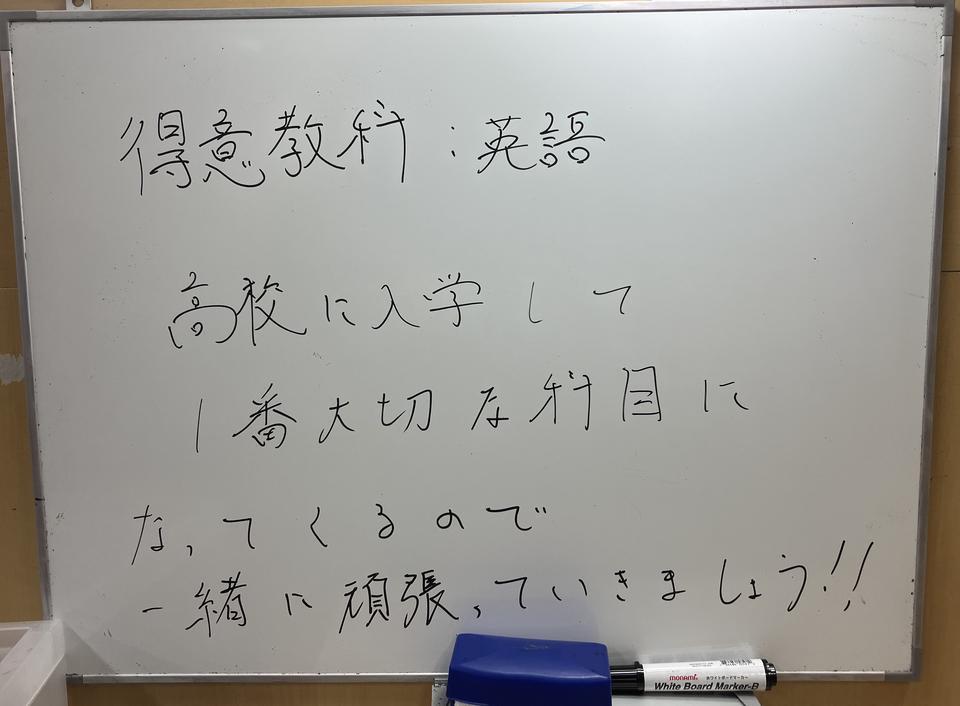 得意教科：英語
高校に入学して
1番大切な科目に
なってくるので
一緒に頑張っていきましょう!!
monami
ホワイトボードマーカー
White Board Marker-B